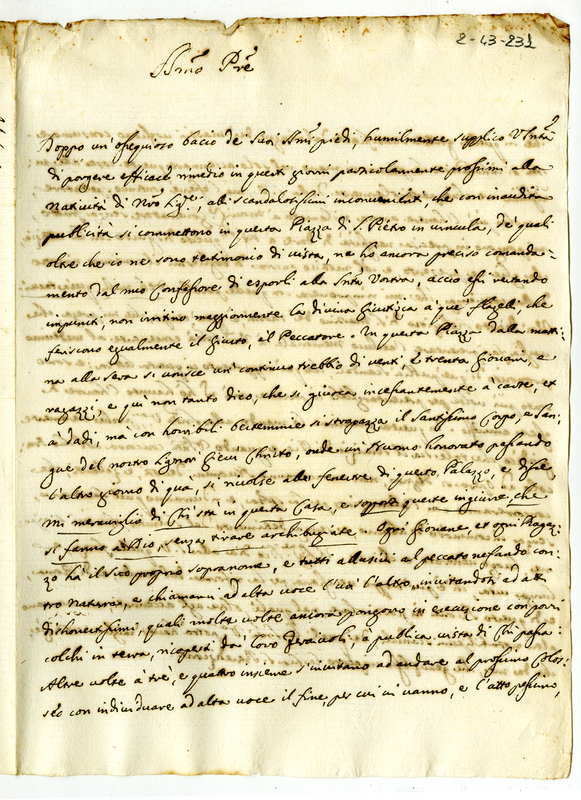 2-43-231
SSmo Pre
Doppo un' ossequioso bacio de' Suoi SSmi piedi, humilmente supplico V. Stà
di porgere efficace rimedio in questi giorni particolarmente prossimi alla
Natività di Nro Sigre, alli scandalosissimi inconvenienti, che con inaudita
publicità si commettono in questa Piazza di S. Pietro in vincula, de' quali
oltre che io ne sono testimonio di vista, ne ho ancora preciso comanda-
mento dal mio Confessore di esporli alla Sntà Vostra, acciò essi restando
impuniti, non irritino maggiormente la divina Giustizia a que' flagelli, che
feriscono egualmente il Giusto, e'l Peccatore. In questa Piazza dalla matti-
na alla sera si unisce un' continuo trebbio di venti, e trenta Giovani, e
ragazzi, e quì non tanto dico, che si giuoca incessantemente a carte, et
a' dadi, mà con horribili bestemmie si strapazza il Santissimo Corpo, e San-
gue del nostro Signor Giesù Christo, onde un' Huomo honorato passando
l'altro giorno di quà, si rivolse alle fenestre di questo Palazzo, e disse,
mi meraviglio di chi stà in questa Casa, e sopporti queste ingiurie, che
si fanno a Dio, senza tirare archibugiate. Ogni Giovane, et ogni Ragaz-
zo hà il suo proprio sopranome, e tutti allusivi al peccato nefando con-
tro natura, e chiamansi ad alta voce l'un' l'altro, invitandosi ad atti
dishonestissimi, quali molte volte ancora pongono in esecuzione con porsi
colchi in terra, ricoperti da' loro ferraiuoli, a publica vista di chi passa.
Altre volte a tre, e quattro insieme s'invitano ad andare al prossimo Colos-
seo con individuare ad alta voce il fine, per cui vi vanno, e l'atto pessimo,